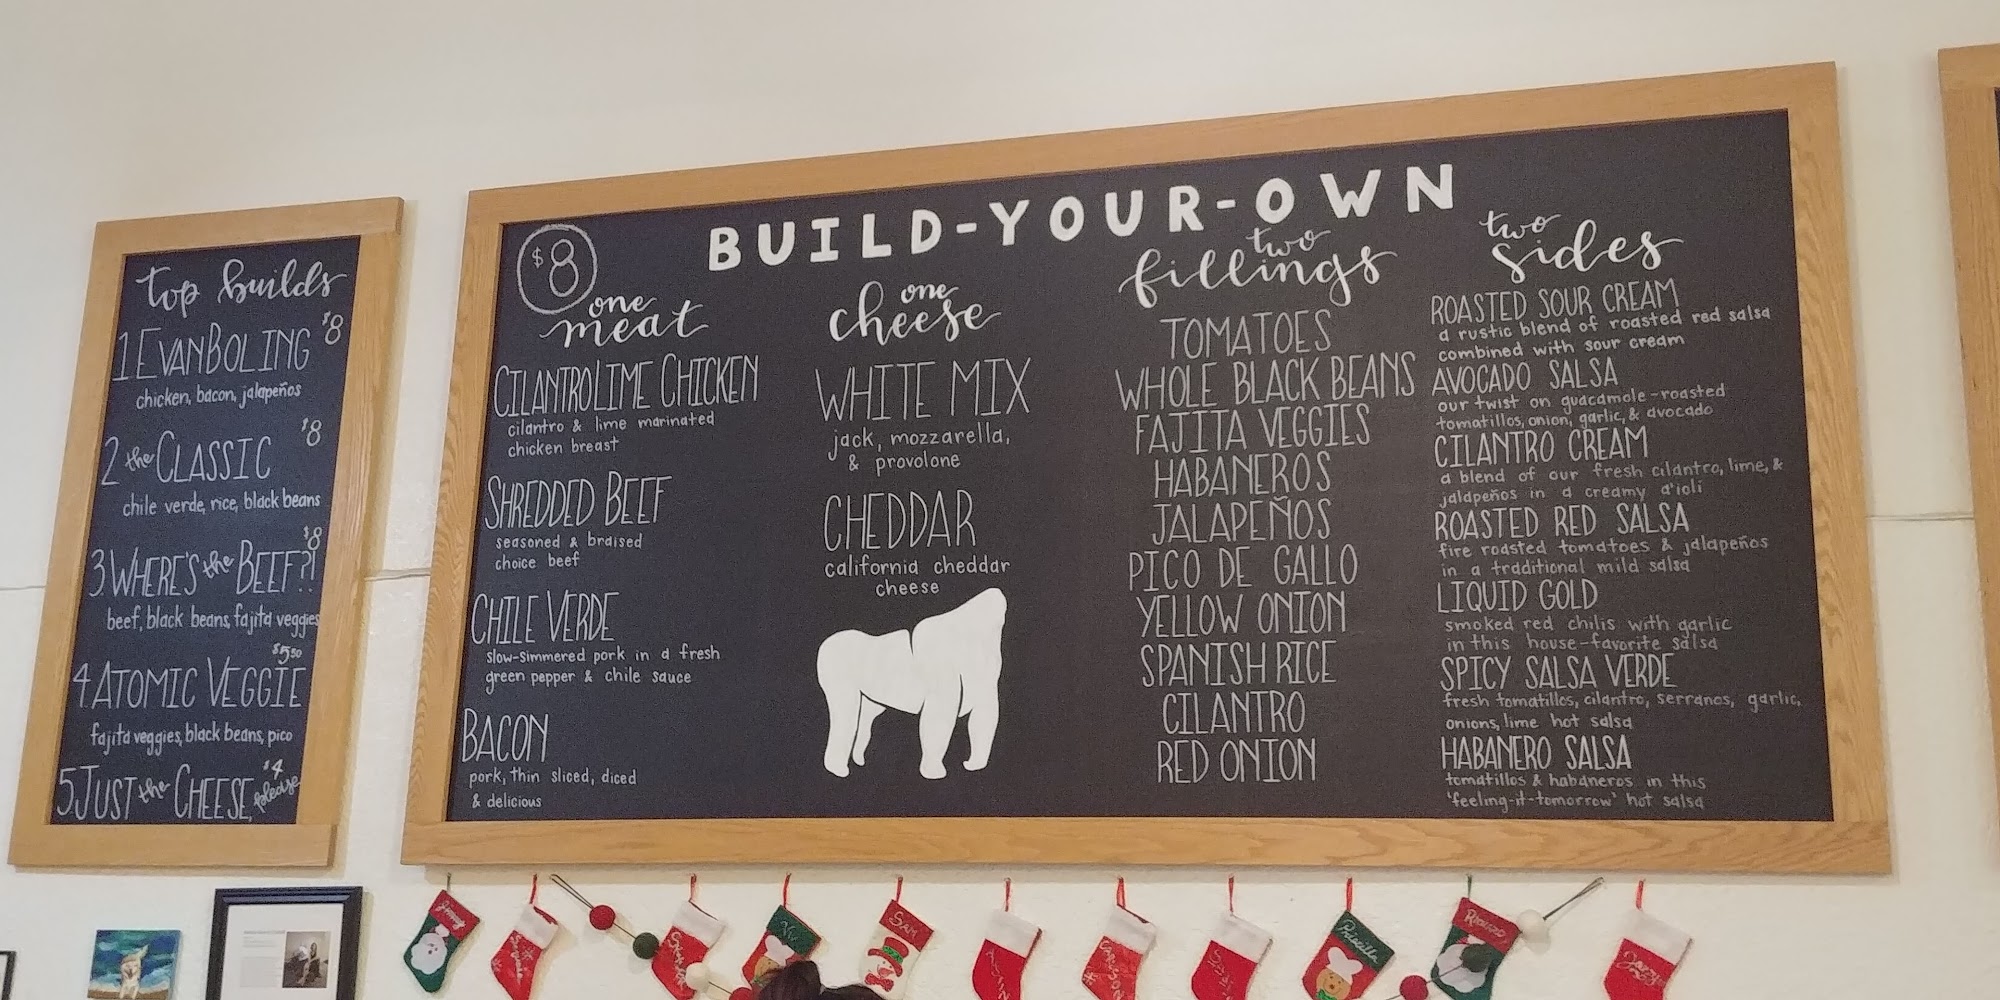 top builds
1 EvanBoling $8
chicken, bacon, jalapeños
2 the Classic $8
chile verde, rice, black beans
$8
3. Where's the Beef?!
beef, black beans, fajita veggies
$5.50
4. Atomic Veggie
fajita veggies, black beans, pico
5. Just the Cheese, please $4
BUILD-YOUR-OWN
$8
one
meat
CilantroLime Chicken
cilantro & lime marinated
chicken breast
Shredded Beef
seasoned & braised
choice beef
Chile Verde
slow-simmered pork in a fresh
green pepper & chile sauce
Bacon
pork, thin sliced, diced
& delicious
one
cheese
WHITE MIX
jack, mozzarella,
& provolone
CHEDDAR
california cheddar
cheese
two
fillings
TOMATOES
WHOLE BLACK BEANS
FAJITA VEGGIES
HABANEROS
JALAPEÑOS
PICO DE GALLO
YELLOW ONION
SPANISH RICE
CILANTRO
RED ONION
two
sides
ROASTED SOUR CREAM
a rustic blend of roasted red salsa
combined with sour cream
AVOCADO SALSA
our twist on guacamole-roasted
tomatillos, onion, garlic, & avocado
CILANTRO CREAM
a blend of our fresh cilantro, lime, &
jalapeños in a creamy a'ioli
ROASTED RED SALSA
fire roasted tomatoes & jalapeños
in a traditional mild salsa
LIQUID GOLD
smoked red chilis with garlic
in this house-favorite salsa
SPICY SALSA VERDE
fresh tomatillos, cilantro, serranos, garlic,
onions, lime hot salsa
HABANERO SALSA
tomatillos & habaneros in this
'feeling-it-tomorrow' hot salsa
SAM
Priscilla